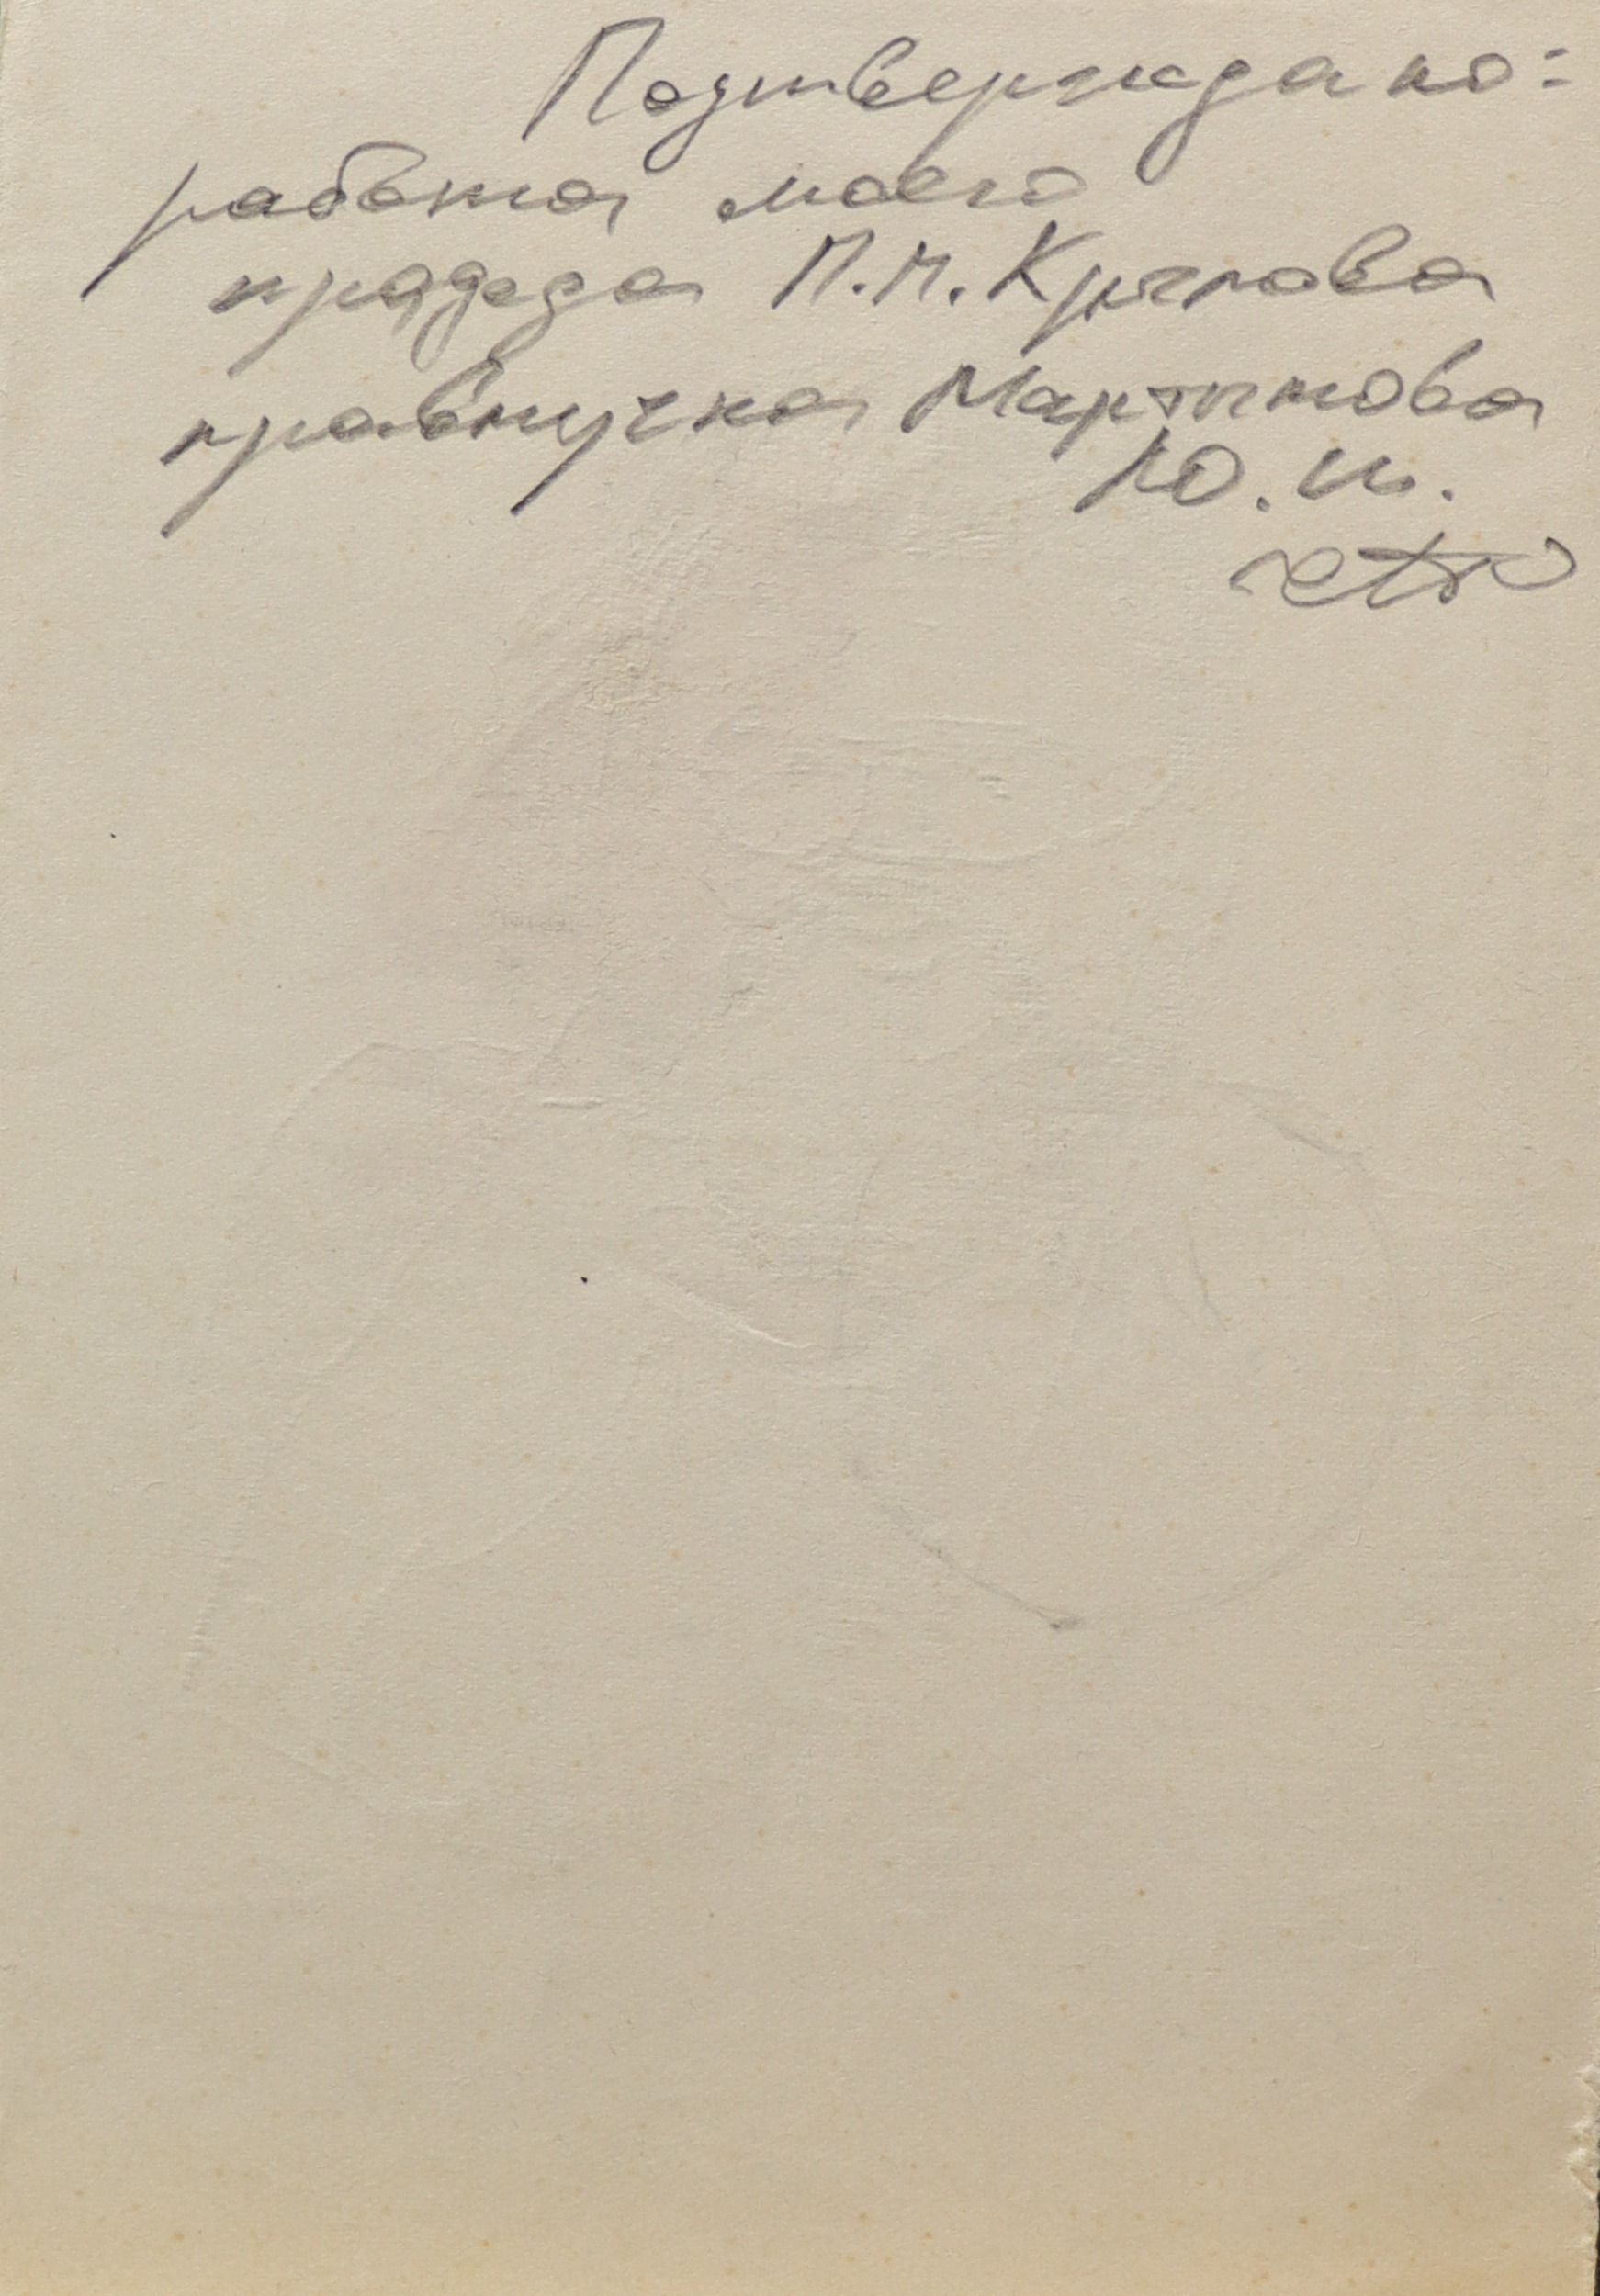 Подтверждаю:
работа моего
прадеда П.Н. Крылова
правнучка Мартынова
Ю.И.